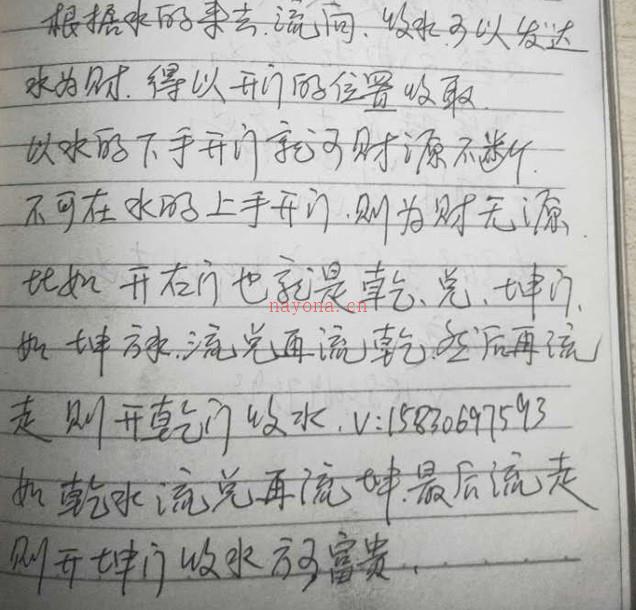 根据水的来去.流向.收水.可以发达
水为财.得以开门的位置收取.
以水的下手开门就可财源不断.
不可在水的上手开门.则为财无源.
比如开右门也就是乾、兑、坤门.
nayona.cn
如坤方水.流兑再流乾.然后再流
走则开乾门收水.V:15830697593
如乾水流兑再流坤.最后流走
则开坤门收水方可富贵.